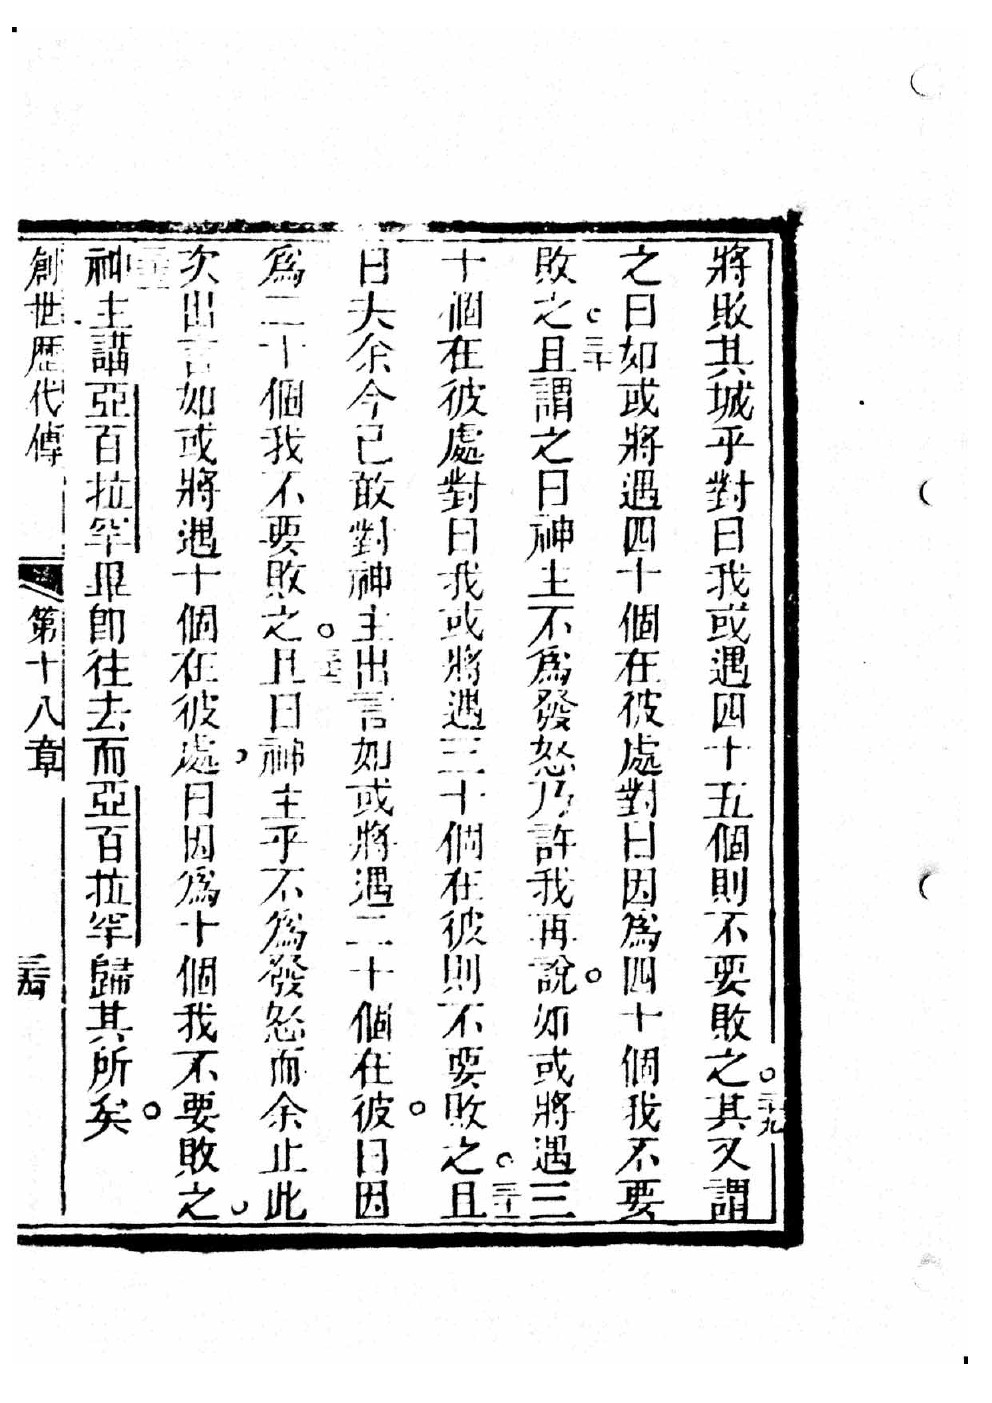 將敗其城乎對曰我或遇四十五個則不要敗之○二十九其又謂
之曰如或將遇四十個在彼處對曰因爲四十個我不要
敗之○三十且謂之曰神主不爲發怒乃許我再說○如或將遇三
十個在彼處對曰我或將遇三十個在彼則不要敗之○三十一且
曰夫余今已敢對神主出言如或將遇二十個在彼○曰因
爲二十個我不要敗之○三十二且曰神主乎不爲發怒而余止此
次出言如或將遇十個在彼處曰因爲十個我不要敗之○
三十三神主講亞百拉罕畢即往去而亞百拉罕歸其所矣○
創世歷代傳 第十八章